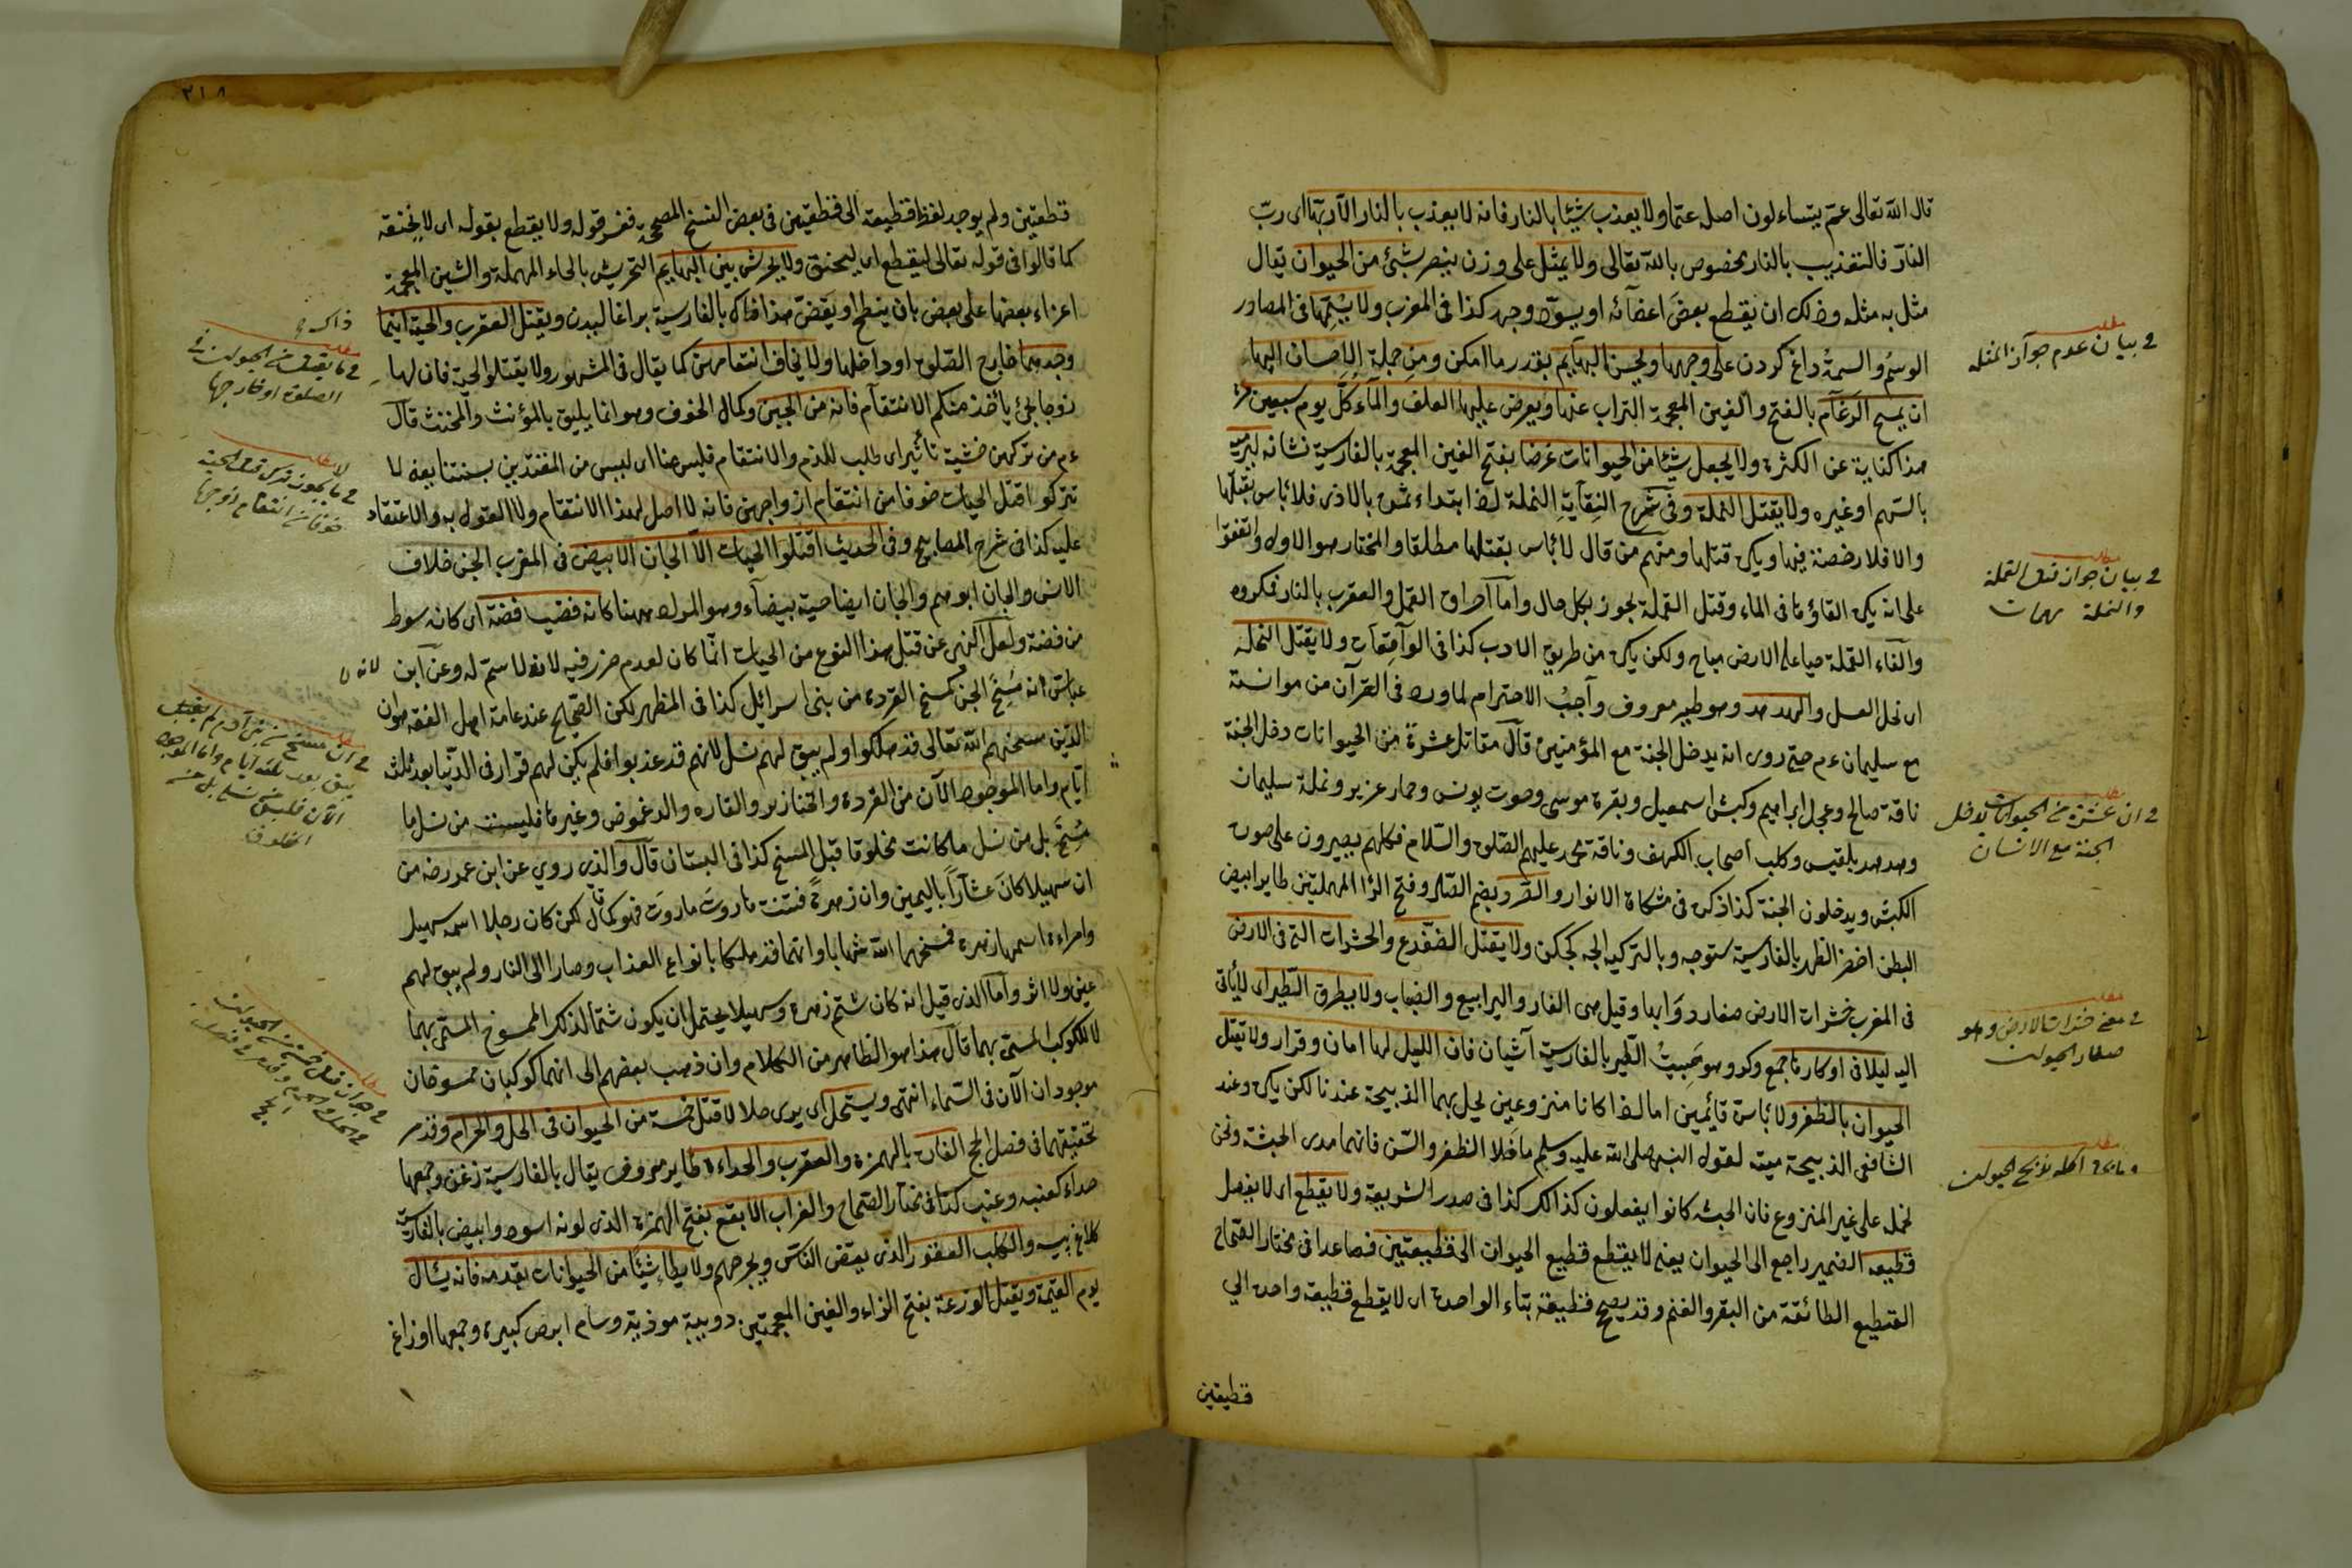 قال الله تعالى عم يتساءلون اصله عما ولا يعذب شيئا بالنار فانه لا يعذب بالنار الا ربها اى رب
النار فالتعذيب بالنار مخصوص بالله تعالى ولا يمثل على وزن ينصر بشئ من الحيوان يقال
مثل به مثله وذلك ان يقطع بعض اعضائه او يسود وجهه كذا فى المغرب ولا يسمها فى المصادر
الوسم والسمة داغ كردن على وجهها ويحسن البهايم بقدر ما امكن ومن جملة الاحسان اليها
ان يمسح الرغام بالفتح والغين المعجمة التراب عنها ويعرض عليها العلف والماء كل يوم سبعين مرة
هذا كناية عن الكثرة ولا يجعل شيئا من الحيوانات غرضا بفتح الغين المعجمة بالفارسية نشانه ليرميه
بالسهم او غيره ولا يقتل النملة وفى شرح النقاية النملة اذا ابتداءت بالاذى فلا باس بقتلها
والا فلا رخصة فيها ويكره قتلها ومنهم من قال لا باس بقتلها مطلقا والمختار هو الاول واتفقوا
على انه يكره القاؤها فى الماء وقتل القملة يجوز بكل حال واما احراق القمل والعقرب بالنار فمكروه
والقاء القملة حيا على الارض مباح ولكن يكره من طريق الادب كذا فى الواقعات ولا يقتل النحلة
اى نحل العسل والهدهد وهو طير معروف واجب الاحترام لما ورد فى القرآن من موانسة
مع سليمان ءم حتى روى انه يدخل الجنة مع المؤمنين قال مقاتل عشرة من الحيوانات دخل الجنة
ناقة صالح وعجل ابراهيم وكبش اسمعيل وبقرة موسى وحوت يونس وحمار عزير ونملة سليمان
وهدهد بلقيس وكلب اصحاب الكهف وناقة محمد عليهم الصلوة والسلام فكلهم يصيرون على صورة
الكبش ويدخلون الجنة كذا ذكره فى مشكاة الانوار والصرد بضم الصاد وفتح الراء المهملتين طاير ابيض
البطن اخضر الظهر بالفارسية ستوجه وبالتركية الجه كجكن ولا يقتل الضفدع والحشرات التى فى الارض
فى المغرب حشرات الارض صغار دوابها وقيل هى الفار واليرابيع والضباب ولا يطرق الطير اى لا يأتى
اليه ليلا فى اوكارها جمع وكر وهو مبيت الطير بالفارسية آشيان فان الليل لها امان وقرار ولا يقتل
الحيوان بالظفر ولا باسنة قائمين اما اذا كانا منزوعين لحل بهما الذبيحة عندنا لكن يكره وعند
الشافعى الذبيحة ميتة لقوله النبى صلى الله عليه وسلم ما خلا الظفر والسن فانهما مدى الحبشة ونحن
نحمله على غير المنزوع فان الحبشة كانوا يفعلون كذالك كذا فى صدر الشريعة ولا يقطع اى لا يفصل
قطيعه الضمير راجع الى الحيوان يعنى لا يقطع قطيع الحيوان الى قطيعتين فصاعدا فى مختار الصحاح
القطيع الطائفة من البقر والغنم وقد يصح قطيعة بتاء الواحدة اى لا يقطع قطيعة واحدة الى
قطيعتين
فى بيان عدم جواز المثله
مطلب
فى بيان جواز قتل القملة
والنملة
مطلب
فى ان عشرة من الحيوانات يدخل
الجنة مع الانسان
مطلب
فى معنى حشرات الارض وهو
صغار الحيوان
مطلب
٢١٨
قطعتين ولم يوجد لفظ قطيعته الى قطيعتين فى بعض النسخ المصححة ففسر قوله ولا يقطع بقوله اى لا يخنقه
كما قالوا فى قوله تعالى ليقطع اى ليختنق ولا يحرش بين البهايم التحريش بالحاء المهملة والشين المعجمة
اغراء بعضها على بعض بان ينطح او يعض هذا ذاك بالفارسية براغاليدن ويقتل العقرب والحية اينما
وجدهما خارج الصلوة او داخلها ولا يخاف انتقامهن كما يقال فى المشهور ولا يقتلوا الحية فان لها
زوجا يجئ ياخذ منكم الانتقام فانه من الجبن وكمال الخوف وهو انما يليق بالمؤنث والمخنث قال
ءم من تركهن خشية تأثير اى طلب للدم والانتقام فليس منا اى ليس من المقتدين بسنتنا يعنى لا
تتركوا قتل الحيات خوفا من انتقام ازواجهن فانه لا اصل لهذا الانتقام ولا القول به والاعتقاد
عليه كذا فى شرح المصابيح وفى الحديث اقتلوا الحيات الا الجان الابيض فى المغرب الجن خلاف
الانس والجان ابوهم والجان ايضا حية بيضاء وهو المراد ههنا كانه قضيب فضة اى كانه سوط
من فضة ولعل النهى عن قتل هذا النوع من الحيات انما كان لعدم ضرر فيه لانه لا سم له وعن ابن
عباس انه مسخ الجن كمسخ القردة من بنى اسرائيل كذا فى المظهر لكن الصحيح عند عامة اهل الفقه هو ان
الذين مسخهم الله تعالى قد هلكوا ولم يبق لهم نسل لانهم قد عذبوا فلم يكن لهم قرار فى الدنيا بعد ثلث
ايام واما الموجود الآن من القردة والخنازير والفاره والدعموص وغيرها فليست من نسل ما
مسخ بل من نسل ما كانت مخلوقا قبل المسخ كذا فى البستان قال والذى روي عن ابن عمر رضه من
ان سهيلا كان عشارا باليمين وان زهرة فتنت هاروت ماروت فهو كما قال لكن كان رجلا اسمه سهيل
وامراءة اسمها زهرة فمسخهما الله شهابا وانهما قد هلكا بانواع العذاب وصارا الى النار ولم يبق لهم
عين ولا اثر واما الذى قيل انه كان شتم زهرة وسهيلا يحتمل ان يكون شتما لذلك الممسوخ المسمى بهما
لا للكوكب المسمى بهما قال هذا هو الظاهر من الكلام وان ذهب بعضهم الى انهما كوكبان ممسوخان
موجودان الآن فى السماء انتهى ويستحل اى يرى حلالا قتل خمسة من الحيوان فى الحل والحرام وقد مر
تحقيقهما فى فصل الحج الفارة بالهمزة والعقرب والحداءة طاير معروف يقال بالفارسية زغن وجمعها
حداء كعنبه وعنب كذا فى مختار الصحاح والغراب الابقع بفتح الهمزة الذى لونه اسود وابيض بالفارسية
كلاغ پيسه والكلب العقور الذى يعض الناس ويجرحهم ولا يطاء شيئا من الحيوانات بقدمه فانه يسأل
يوم القيمة ويقتل الوزغة بفتح الزاء والغين المعجمتين دويبة موذية وسام ابرص كبيره وجمعها اوزاغ
لانه
مطلب
فى ما يقتل من الحيوان فى
الصلوة او خارجها
مطلب
خوفا من انتقام ازواجها